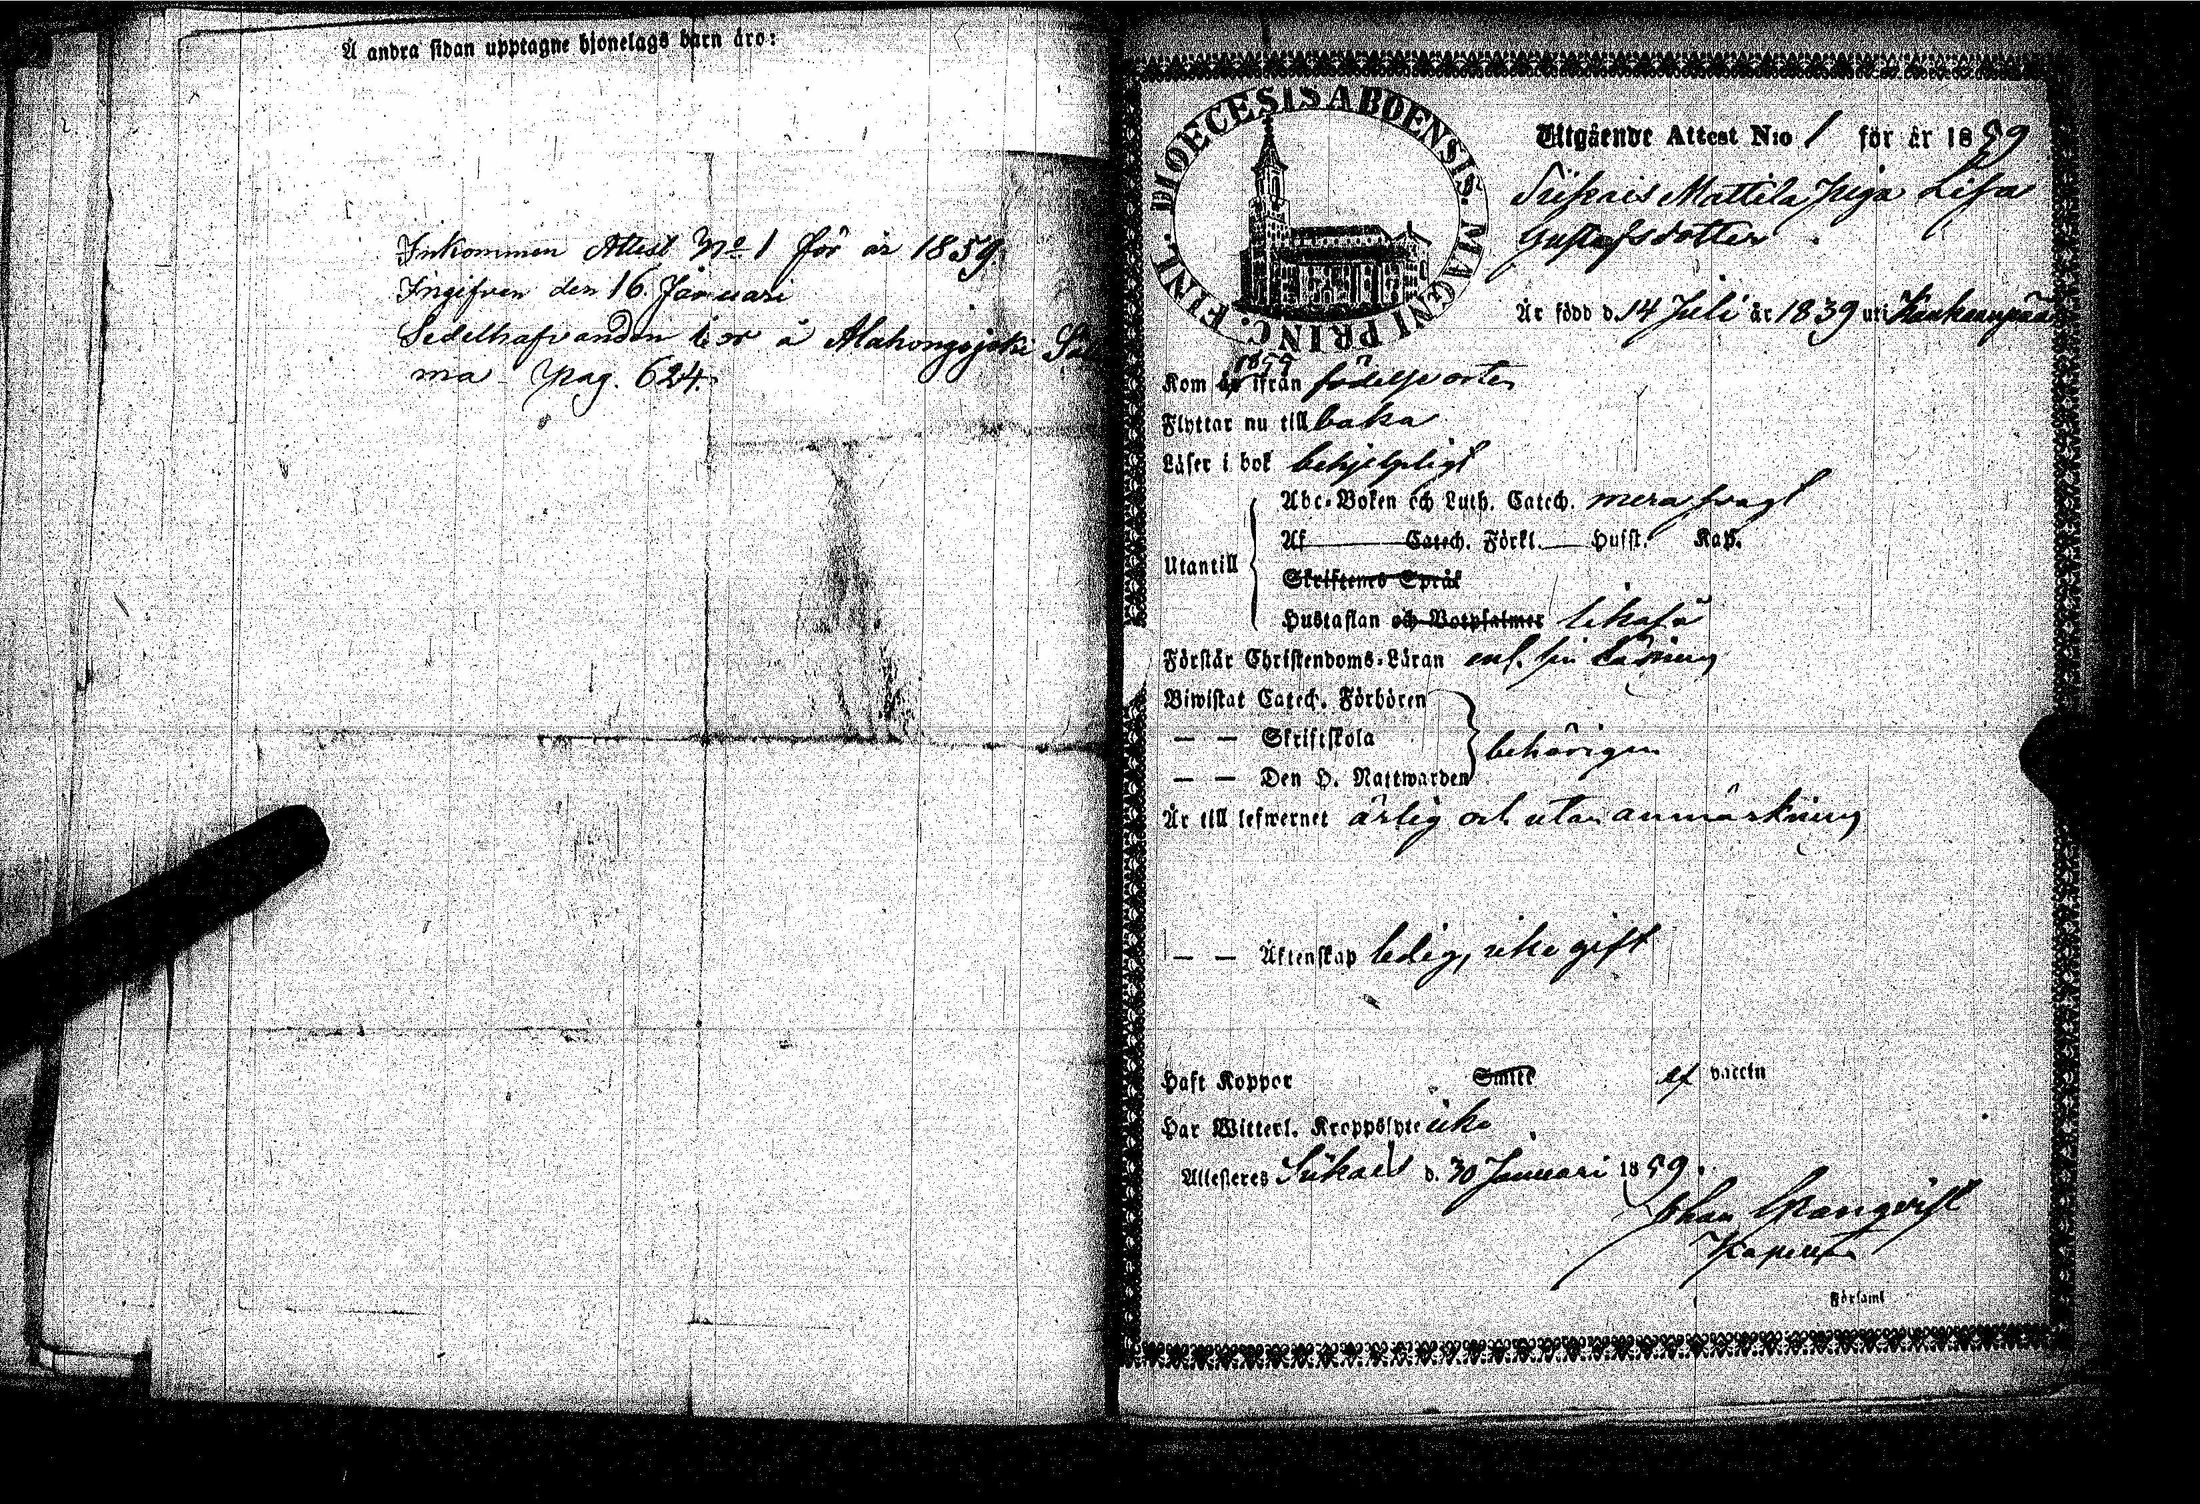 Å andra sidan upptagne hjonelags barn äro:
Inkommen Attest No 1 för år 1859.
Ingifven den 16 Januari
Sedelhafvanden bor å Alahongojoki Sal
ma pag. 624.
DIOECESIS ABOENSIS. MAGNI PRINC. FINL.
Utgående Attest N:o 1 för år 1859
Mattila piga Lisa
Gustafsdotter
Är född d. 14 Juli år 1839 uti Kankaanpää
1855
Kom år ifrån födelseorten
Flyttar nu till baka
Läser i bok behjelpligt
Utantill
Abc-Boken och Luth. Catech. mera svagt
Af Catech. Förkl. Husst. Kap.
Skriftenes Språk
Hustaflan och Botpsalmer likaså
Förstår Christendoms-Läran enl. sin läsning
Biwistat Catech. Förhören
— — Skriftskola behörigen
— — Den H. Nattwarden
Är till lefwernet ärlig och utan anmärkning
— — Äktenskap ledig, icke gift
Haft Koppor Smitt af vaccin
Har Witterl. Kroppslyte icke
Attesteres Siikais d. 30 Januari 1859.
Johan
Församl